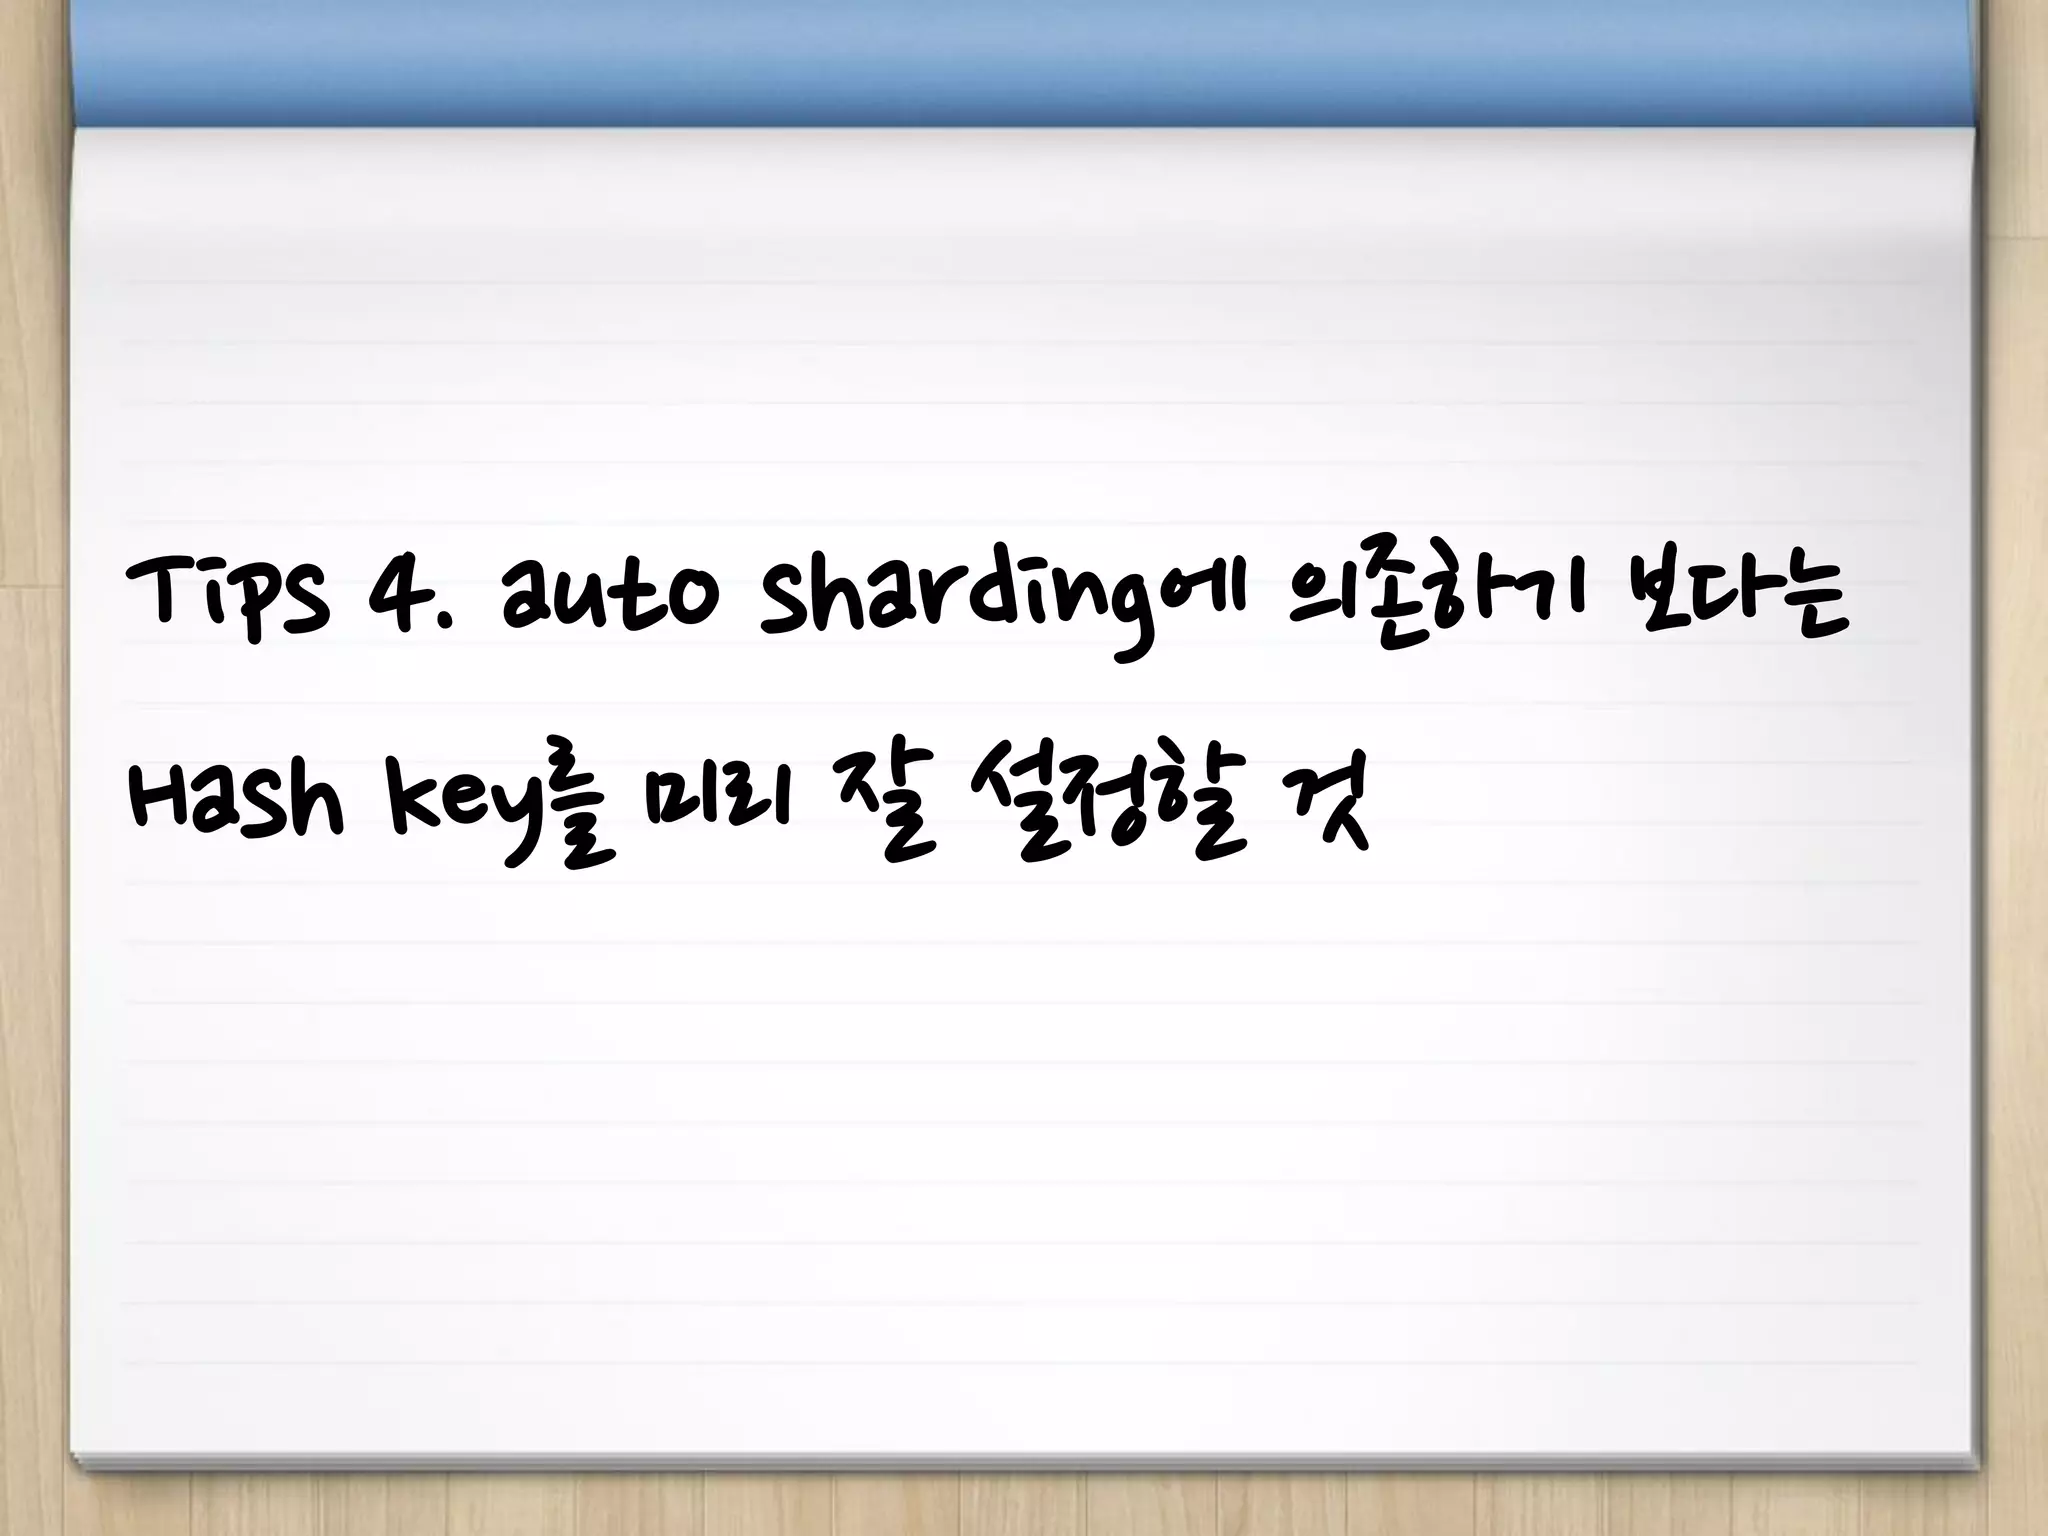 Tips 4. auto sharding에 의존하기 보다는
Hash key를 미리 잘 설정할 것